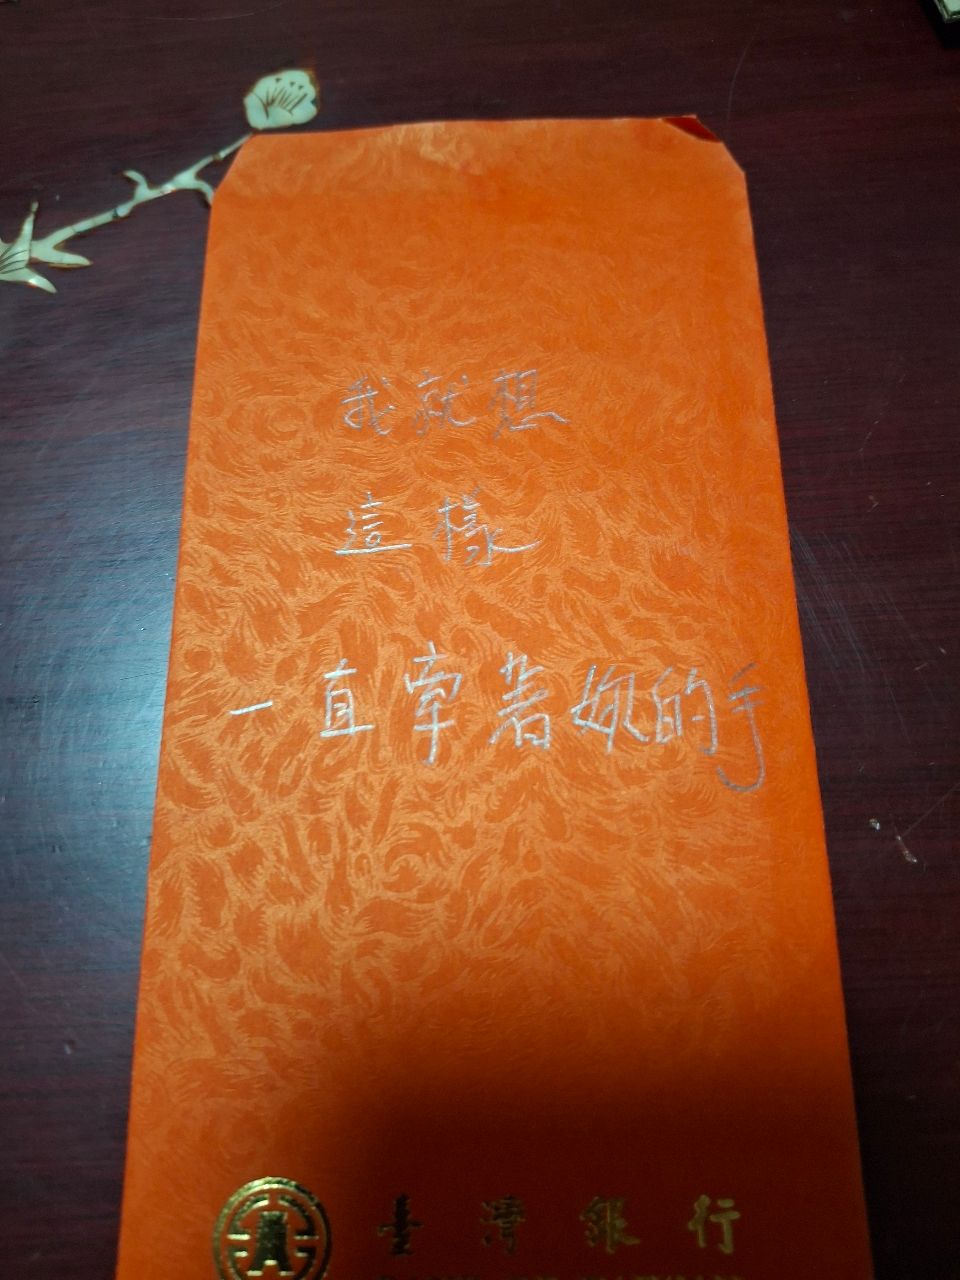 我就想
這樣
一直牽著妳的手
臺灣銀行